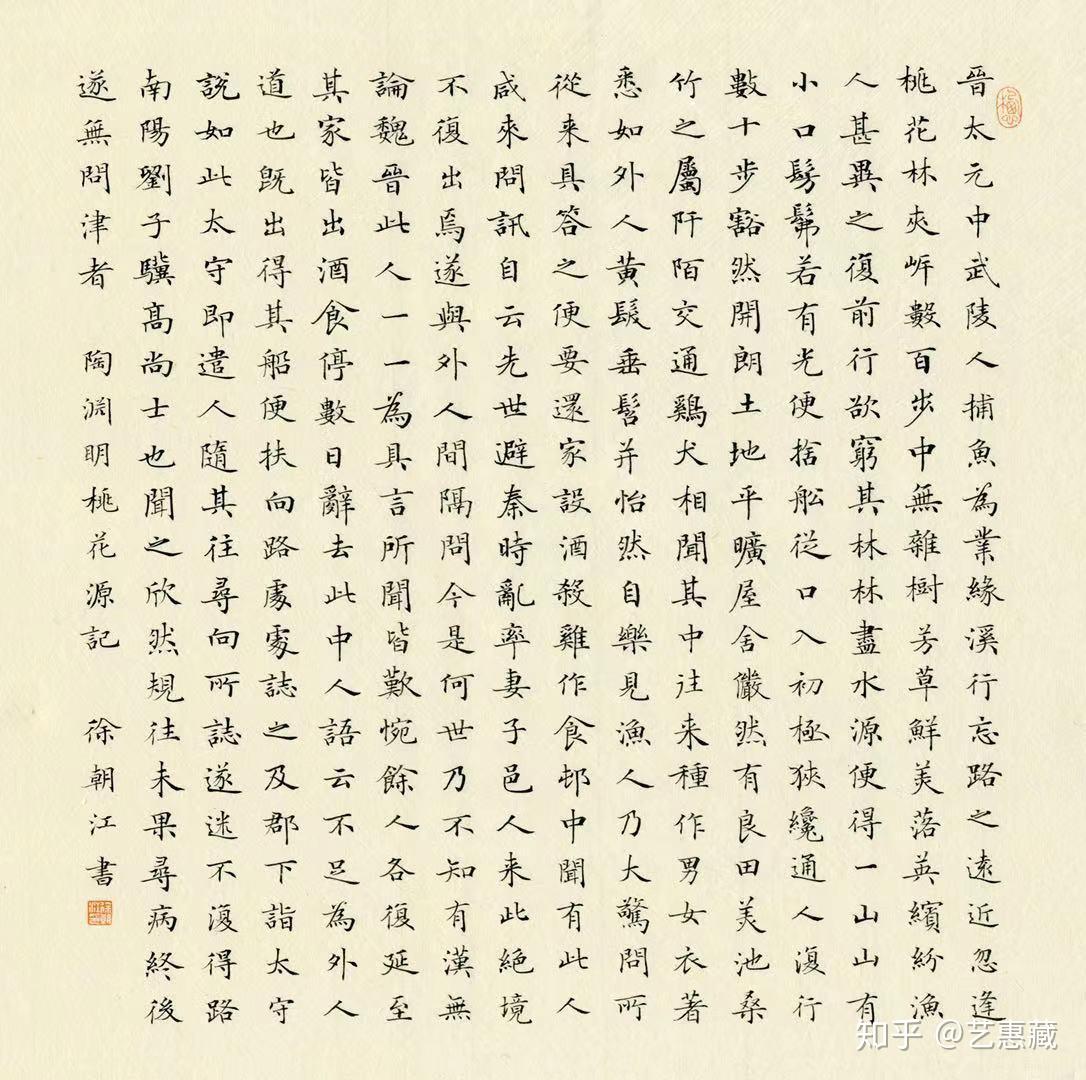 晉太元中武陵人捕魚為業緣溪行忘路之遠近忽逢
桃花林夾岸數百步中無雜樹芳草鮮美落英繽紛漁
人甚異之復前行欲窮其林林盡水源便得一山山有
小口髣髴若有光便捨舩從口入初極狹纔通人復行
數十步豁然開朗土地平曠屋舍儼然有良田美池桑
竹之屬阡陌交通鷄犬相聞其中往来種作男女衣著
悉如外人黄髮垂髫并怡然自樂見漁人乃大驚問所
從来具答之便要還家設酒殺雞作食邨中聞有此人
咸來問訊自云先世避秦時亂率妻子邑人来此絕境
不復出焉遂與外人間隔問今是何世乃不知有漢無
論魏晉此人一一為具言所聞皆歎惋餘人各復延至
其家皆出酒食停數日辭去此中人語云不足為外人
道也既出得其船便扶向路處處誌之及郡下詣太守
說如此太守即遣人隨其往尋向所誌遂迷不復得路
南陽劉子驥髙尚士也聞之欣然規往未果尋病終後
遂無問津者 陶淵明桃花源記 徐朝江書
知乎 @艺惠藏